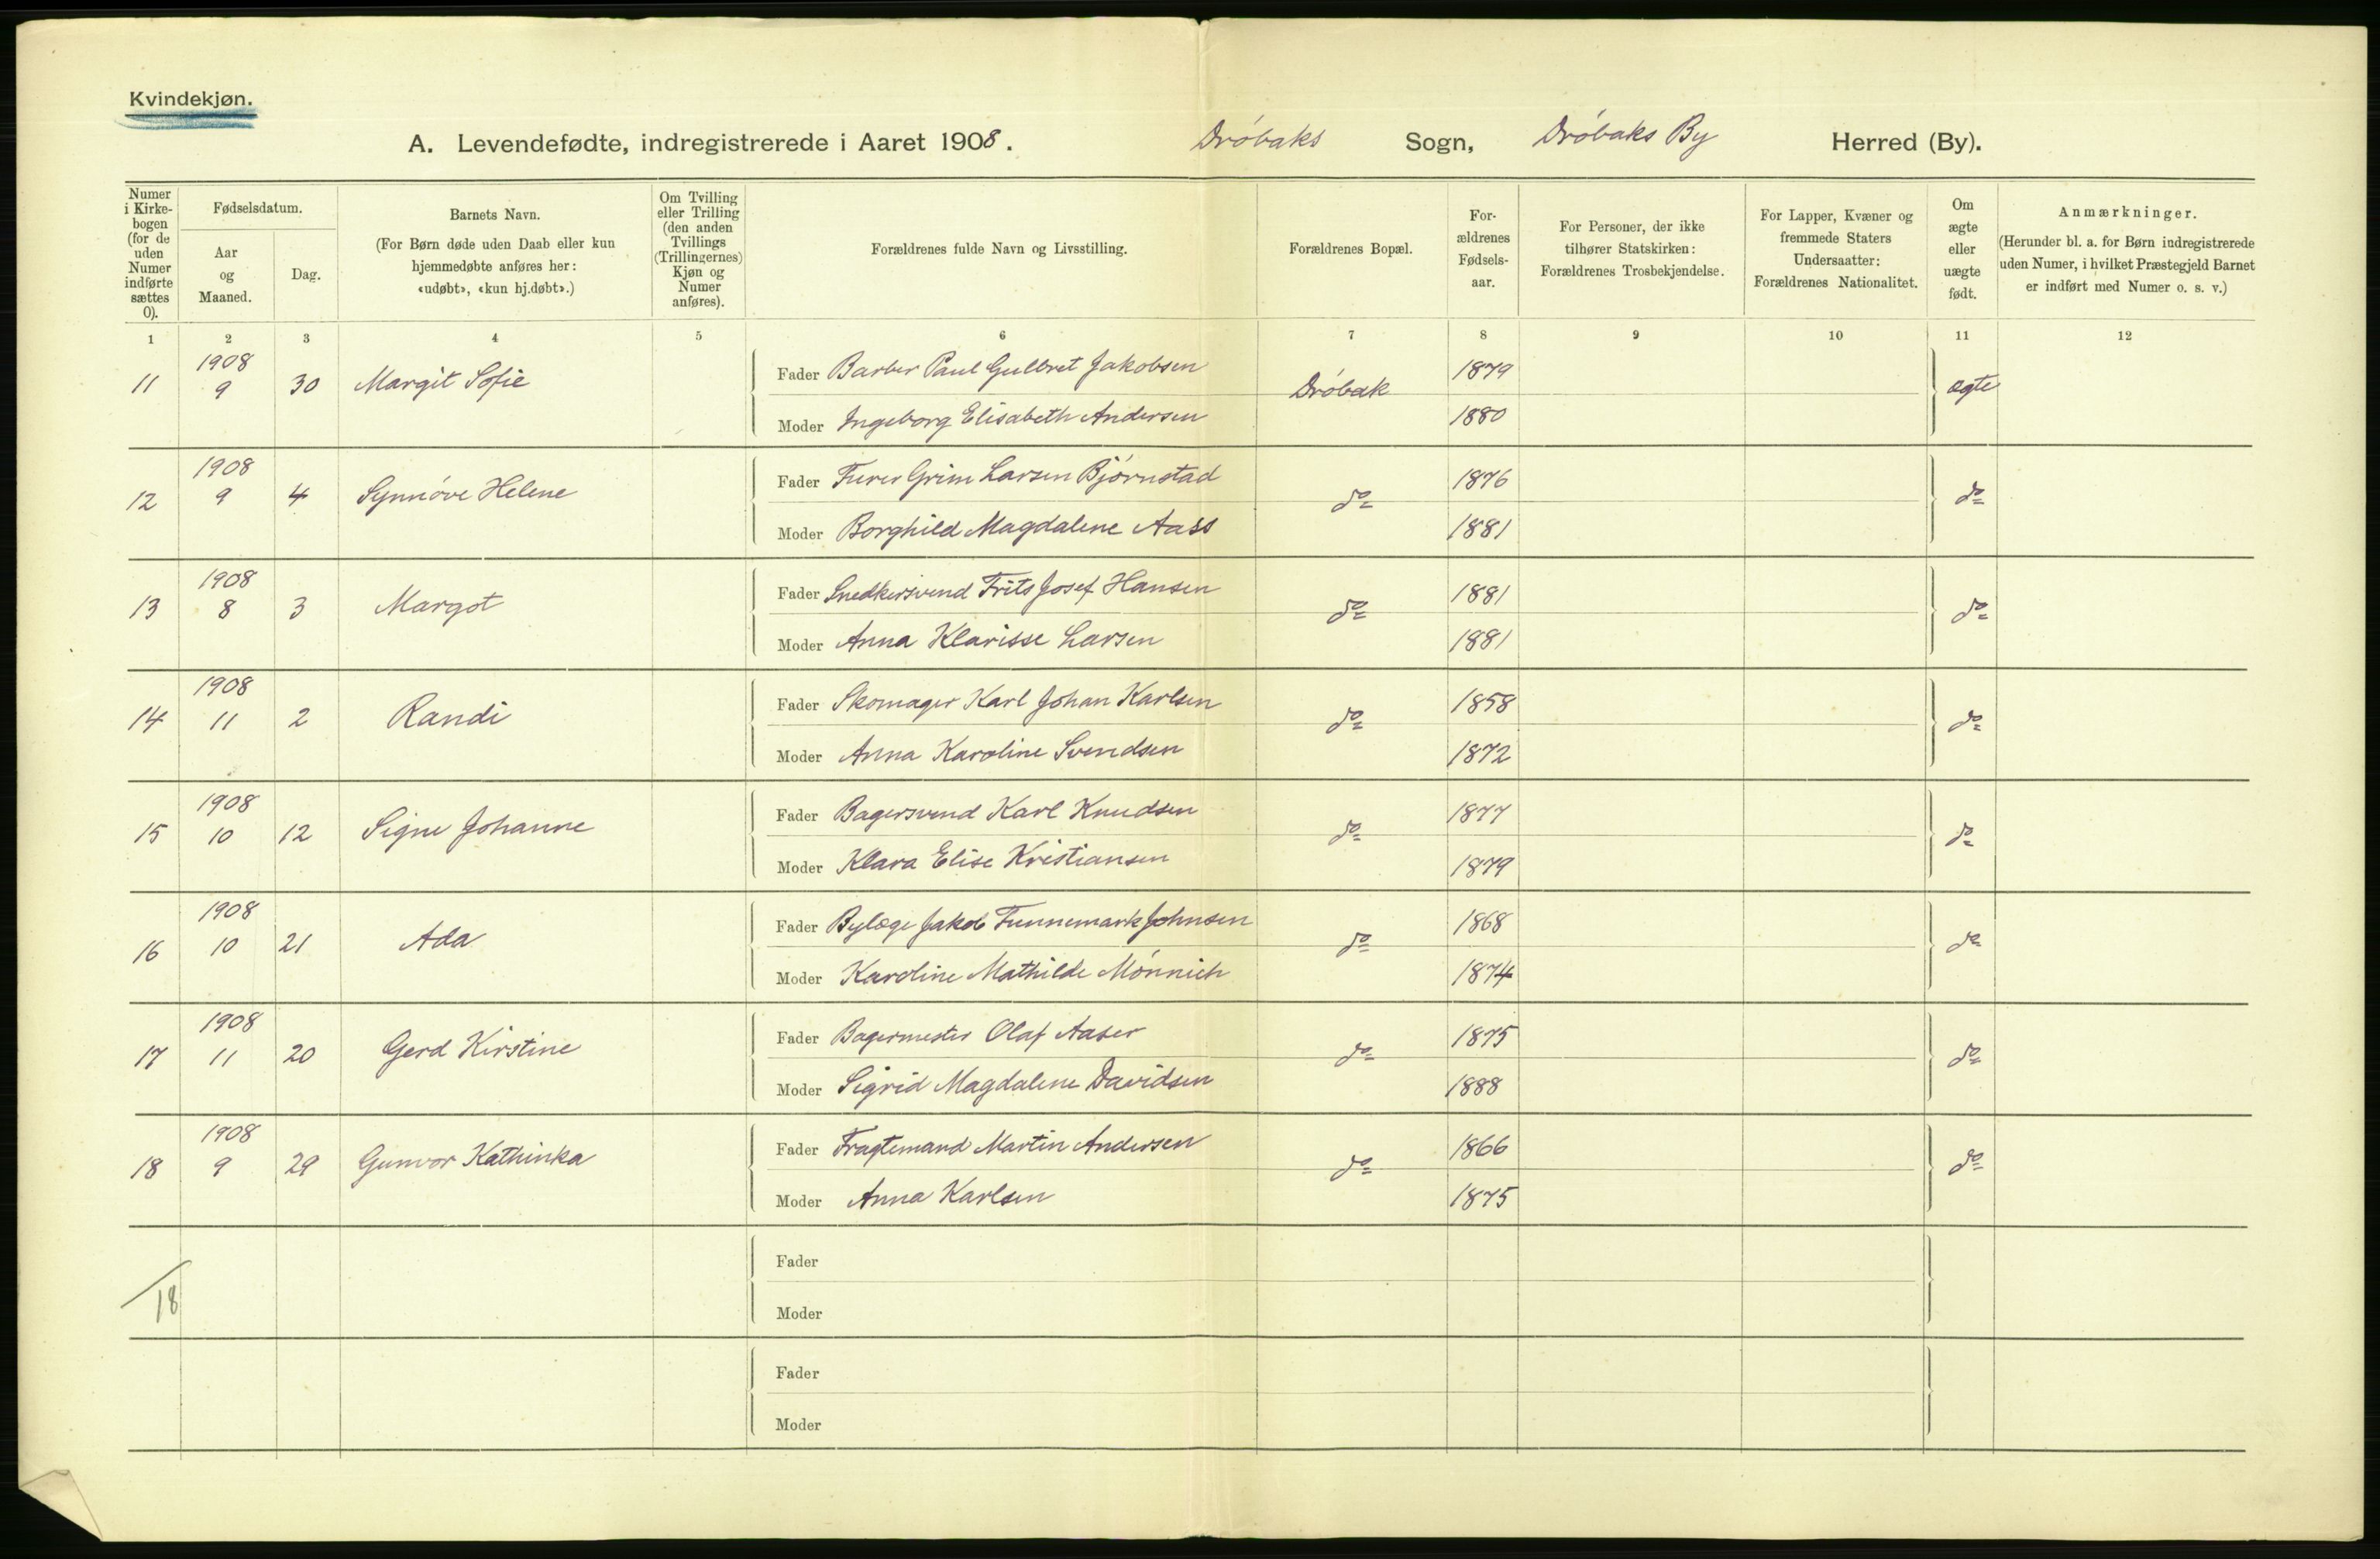 Kvindekjøn.
A. Levendefødte, indregistrerede i Aaret 1908. Drøbaks Sogn, Drøbaks By Herred (By).
Numer i Kirke-bogen (for de uden Numer indførte sættes 0).
Fødselsdatum.
Aar og Maaned.
Dag.
Barnets Navn.
(For Børn døde uden Daab eller kun
hjemmedøbte anføres her:
«udøbt», «kun hj.døbt».)
Om Tvilling
eller Trilling
(den anden
Tvillings
(Trillingernes)
Kjøn og
Numer
anføres).
Forældrenes fulde Navn og Livsstilling.
Forældrenes Bopæl.
For-
ældrenes
Fødsels-
aar.
For Personer, der ikke
tilhører Statskirken:
Forældrenes Trosbekjendelse.
For Lapper, Kvæner og
fremmede Staters
Undersaatter:
Forældrenes Nationalitet.
Om
ægte
eller
uægte
født.
Anmærkninger.
(Herunder bl. a. for Børn indregistrerede
uden Numer, i hvilket Præstegjeld Barnet
er indført med Numer o. s. v.)
1 2 3 4 5 6 7 8 9 10 11 12
1908
11 9 30 Margit Sofie Fader Barber Paul Gulbret Jakobsen Drøbak 1879 ægte
Moder Ingeborg Elisabeth Andersen 1880
1908
12 9 4 Synnøve Helene Fader Grim Larsen Bjørnstad do 1876 do
Moder Borghild Magdalene Aass 1881
1908
13 8 3 Margot Fader Snedkersvend Frits Josef Hansen do 1881 do
Moder Anna Klarisse Larsen 1881
1908
14 11 2 Randi Fader Skomager Karl Johan Karlsen do 1858 do
Moder Anna Karoline Svendsen 1872
1908
15 10 12 Signe Johanne Fader Bagersvend Karl Knudsen do 1877 do
Moder Klara Elise Kristiansen 1879
1908
16 10 21 Ada Fader Bylæge Jakob Funnemark Johnsen do 1868 do
Moder Karoline Mathilde Mønnich 1874
1908
17 11 20 Gerd Kirstine Fader Bagermester Olaf Aaser do 1875 do
Moder Sigrid Magdalene Davidsen 1888
1908
18 9 29 Gunvor Kathinka Fader Fragtemand Martin Andersen do 1866 do
Moder Anna Karlsen 1875
Fader
18
Moder
Fader
Moder